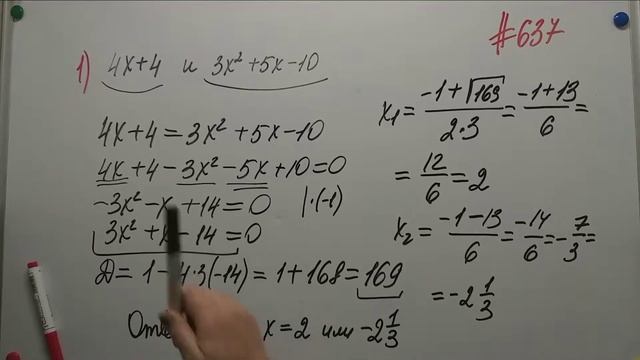 #637
1) 4x+4 и 3x²+5x-10
4x+4=3x²+5x-10
4x+4-3x²-5x+10=0
-3x²-x+14=0 |·(-1)
3x²+x-14=0
D=1-4·3(-14)=1+168=169
x₁=(-1+√169)/(2·3)=(-1+13)/6=
=12/6=2
x₂=(-1-13)/6=-14/6=-7/3=
=-2 1/3
x=2 или -2 1/3